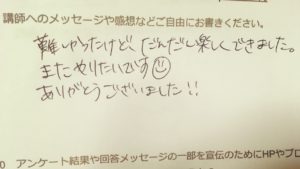 講師へのメッセージや感想などご自由にお書きください。
難しかったけど、だんだん楽しくできました。
またやりたいです☺
ありがとうございました!!
アンケート結果や回答メッセージの一部を宣伝のためにHPやブロ